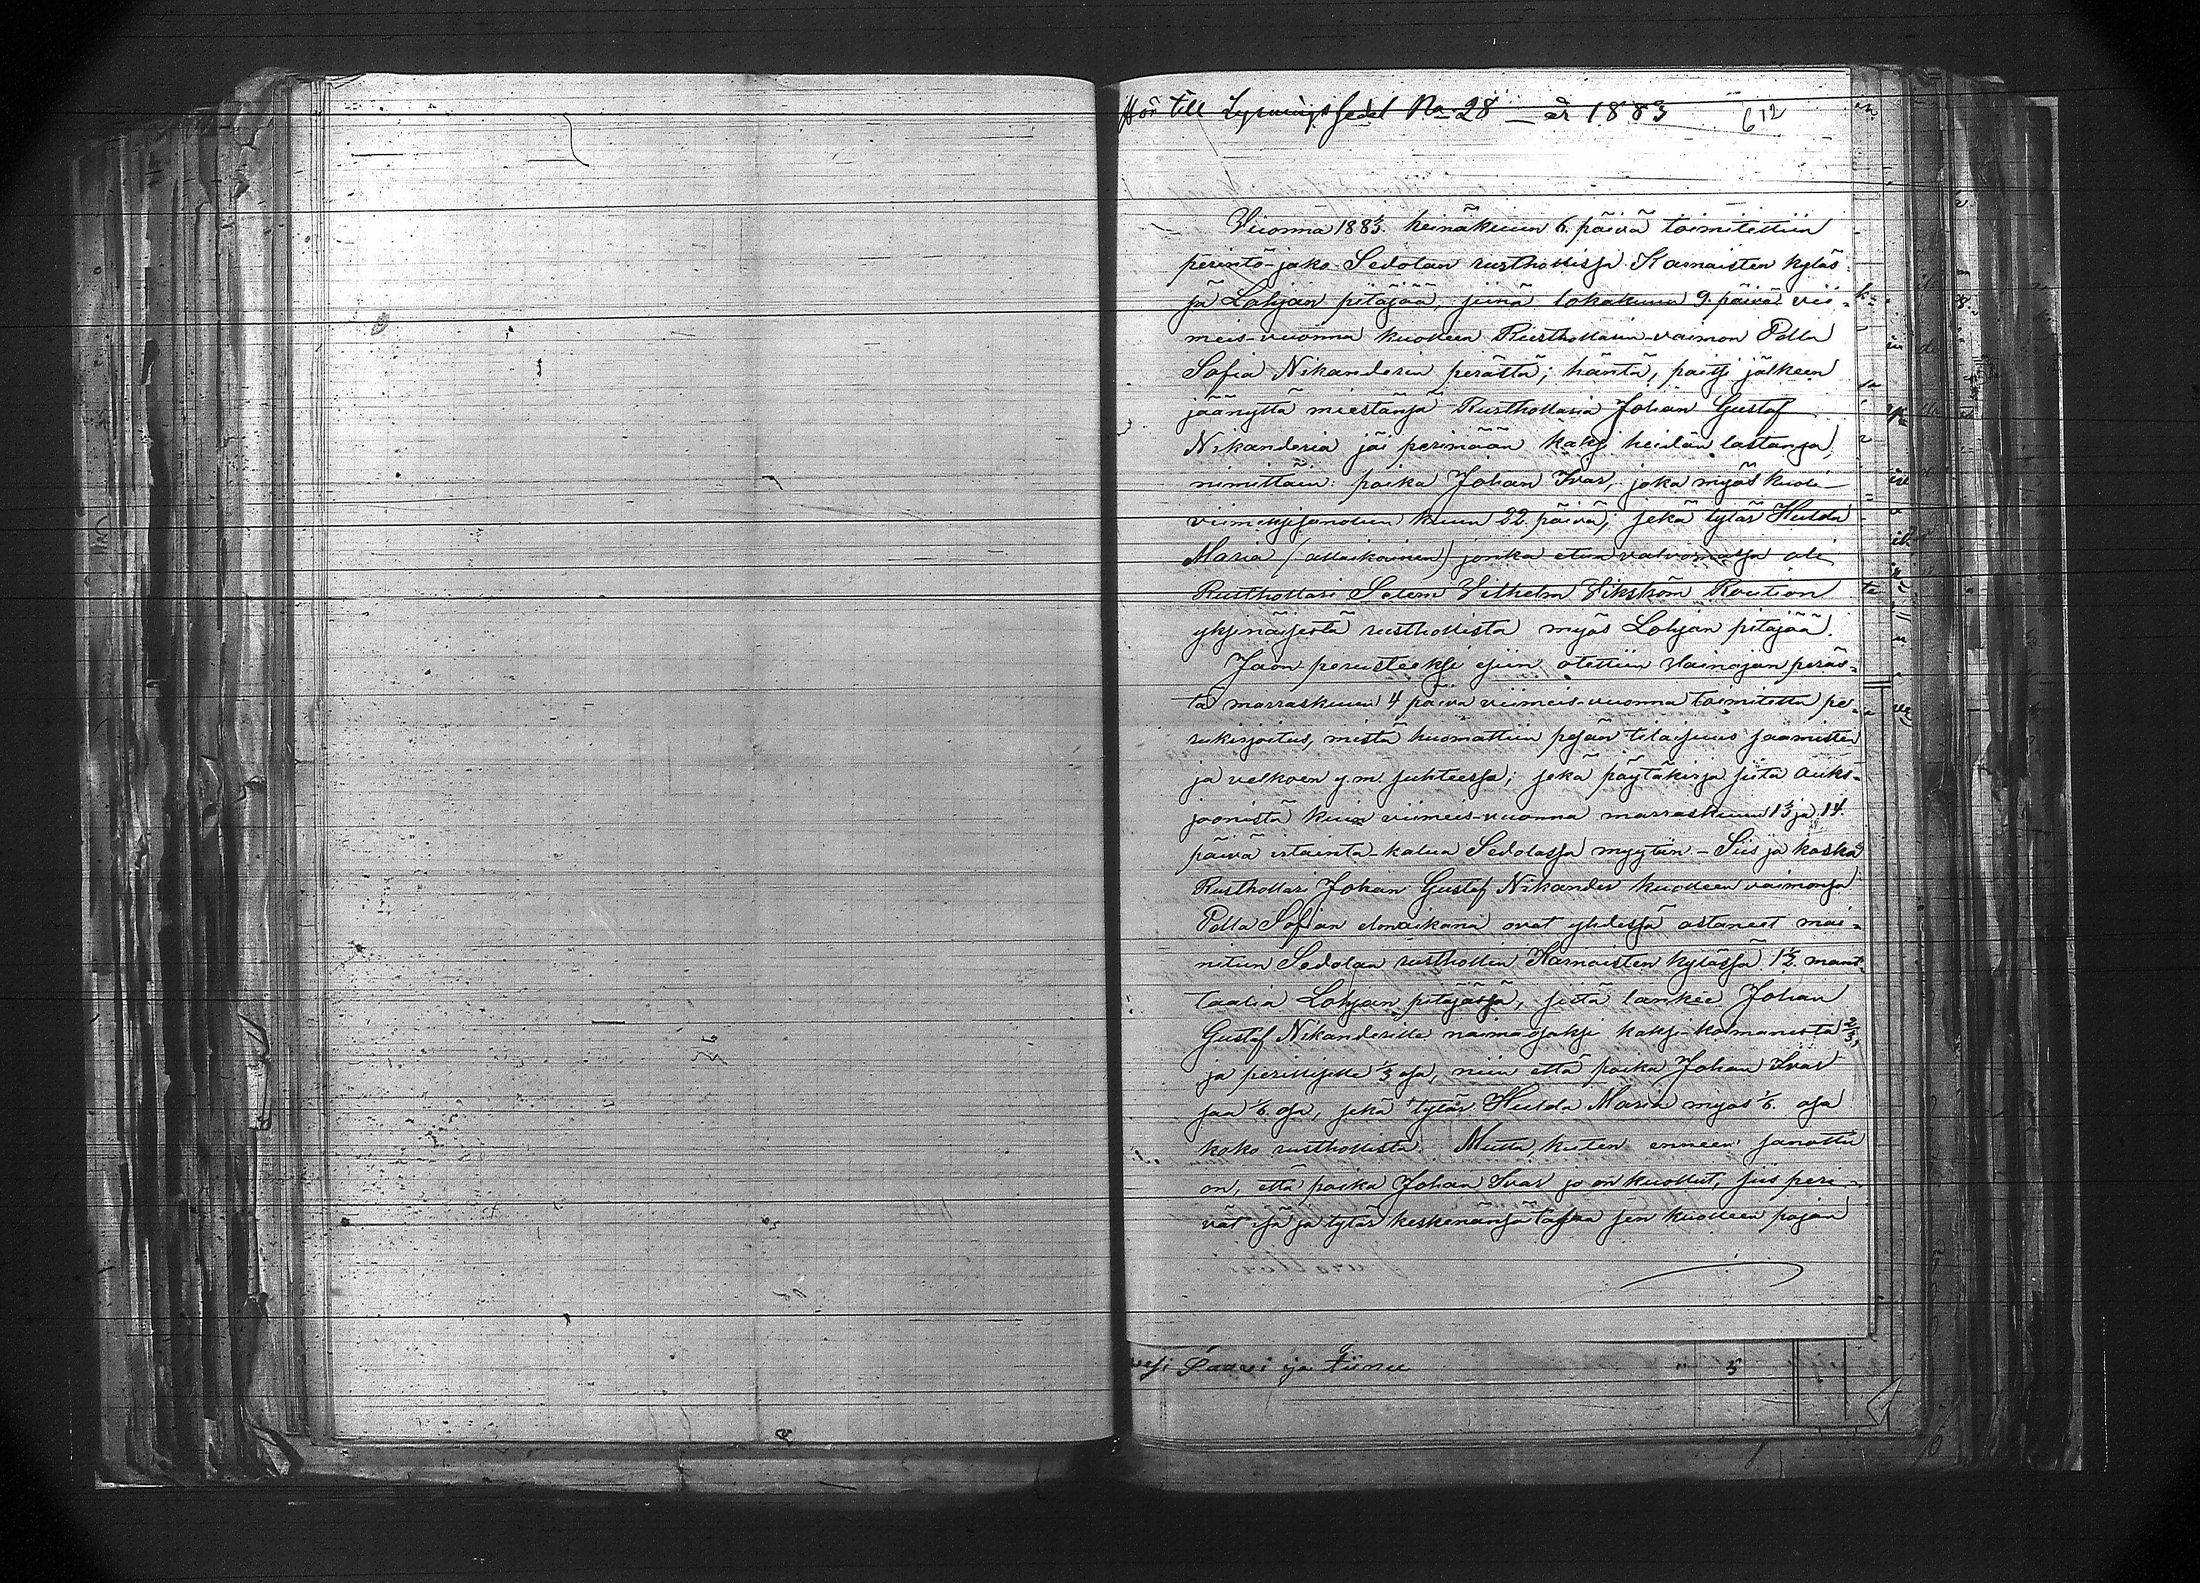 Hör till Lysningssedel No 28 – år 1883
612
Vuonna 1883 heinäkuun 6 päivä toimitettiin
perintö-jako Sedolan rusthollissa Karnaisten kyläs-
sä Lohjan pitäjää, siinä lokakuun 9 päivä vii-
meis-vuonna kuolleen Rusthollarin-vaimon Edla
Sofia Nikanderin perästä; häntä, paitsi jälkeen
jäänyttä miestänsä Rusthollaria Johan Gustaf
Nikanderia jäi perimään kaksi heidän lastansa,
nimittäin: poika Johan Ivar, joka myös kuoli
viimeksisanotun kuun 22. päivä, sekä tytär Hulda
Maria (allaikäinen) jonka etua valvomassa oli
Rusthollari Selem Vilhelm Vikström Roution
yksinäisestä rusthollista myös Lohjan pitäjää.
Jaon perusteeksi esiin otettiin Vainajan peräs-
tä marraskuun 4 päivä viimeis-vuonna toimitettu pe-
rukirjoitus, mistä huomattiin pesän tilaisuus saamisten
ja velkoen y.m. suhteessa; sekä pöytäkirja siitä auks-
joonista kuin viimeis-vuonna marraskuun 13 ja 14.
päivä irtainta-kalua Sedolassa myytiin. – Siis ja koska
Rusthollari Johan Gustaf Nikander kuolleen vaimonsa
Edla Sofian elinaikana ovat yhdessä ostaneet mai-
nitun Sedolan rusthollin Karnaisten kylässä 1/2 mant-
taalia Lohjan pitäjässä, siitä lankee Johan
Gustaf Nikanderille naimaosaksi kaksi-kolmannesta 2/3,
ja perillisille 1/3 osa, niin että poika Johan Ivar
saa 1/6 osa, sekä tytär Hulda Maria myös 1/6 osa
koko rusthollista. Mutta, kuten enneen sanottu
on, että poika Johan Ivar jo on kuollut, siis peri-
vät isä ja tytär keskenänsä tasaa sen kuolleen pojan
vesi Saavi ja tiinu 5